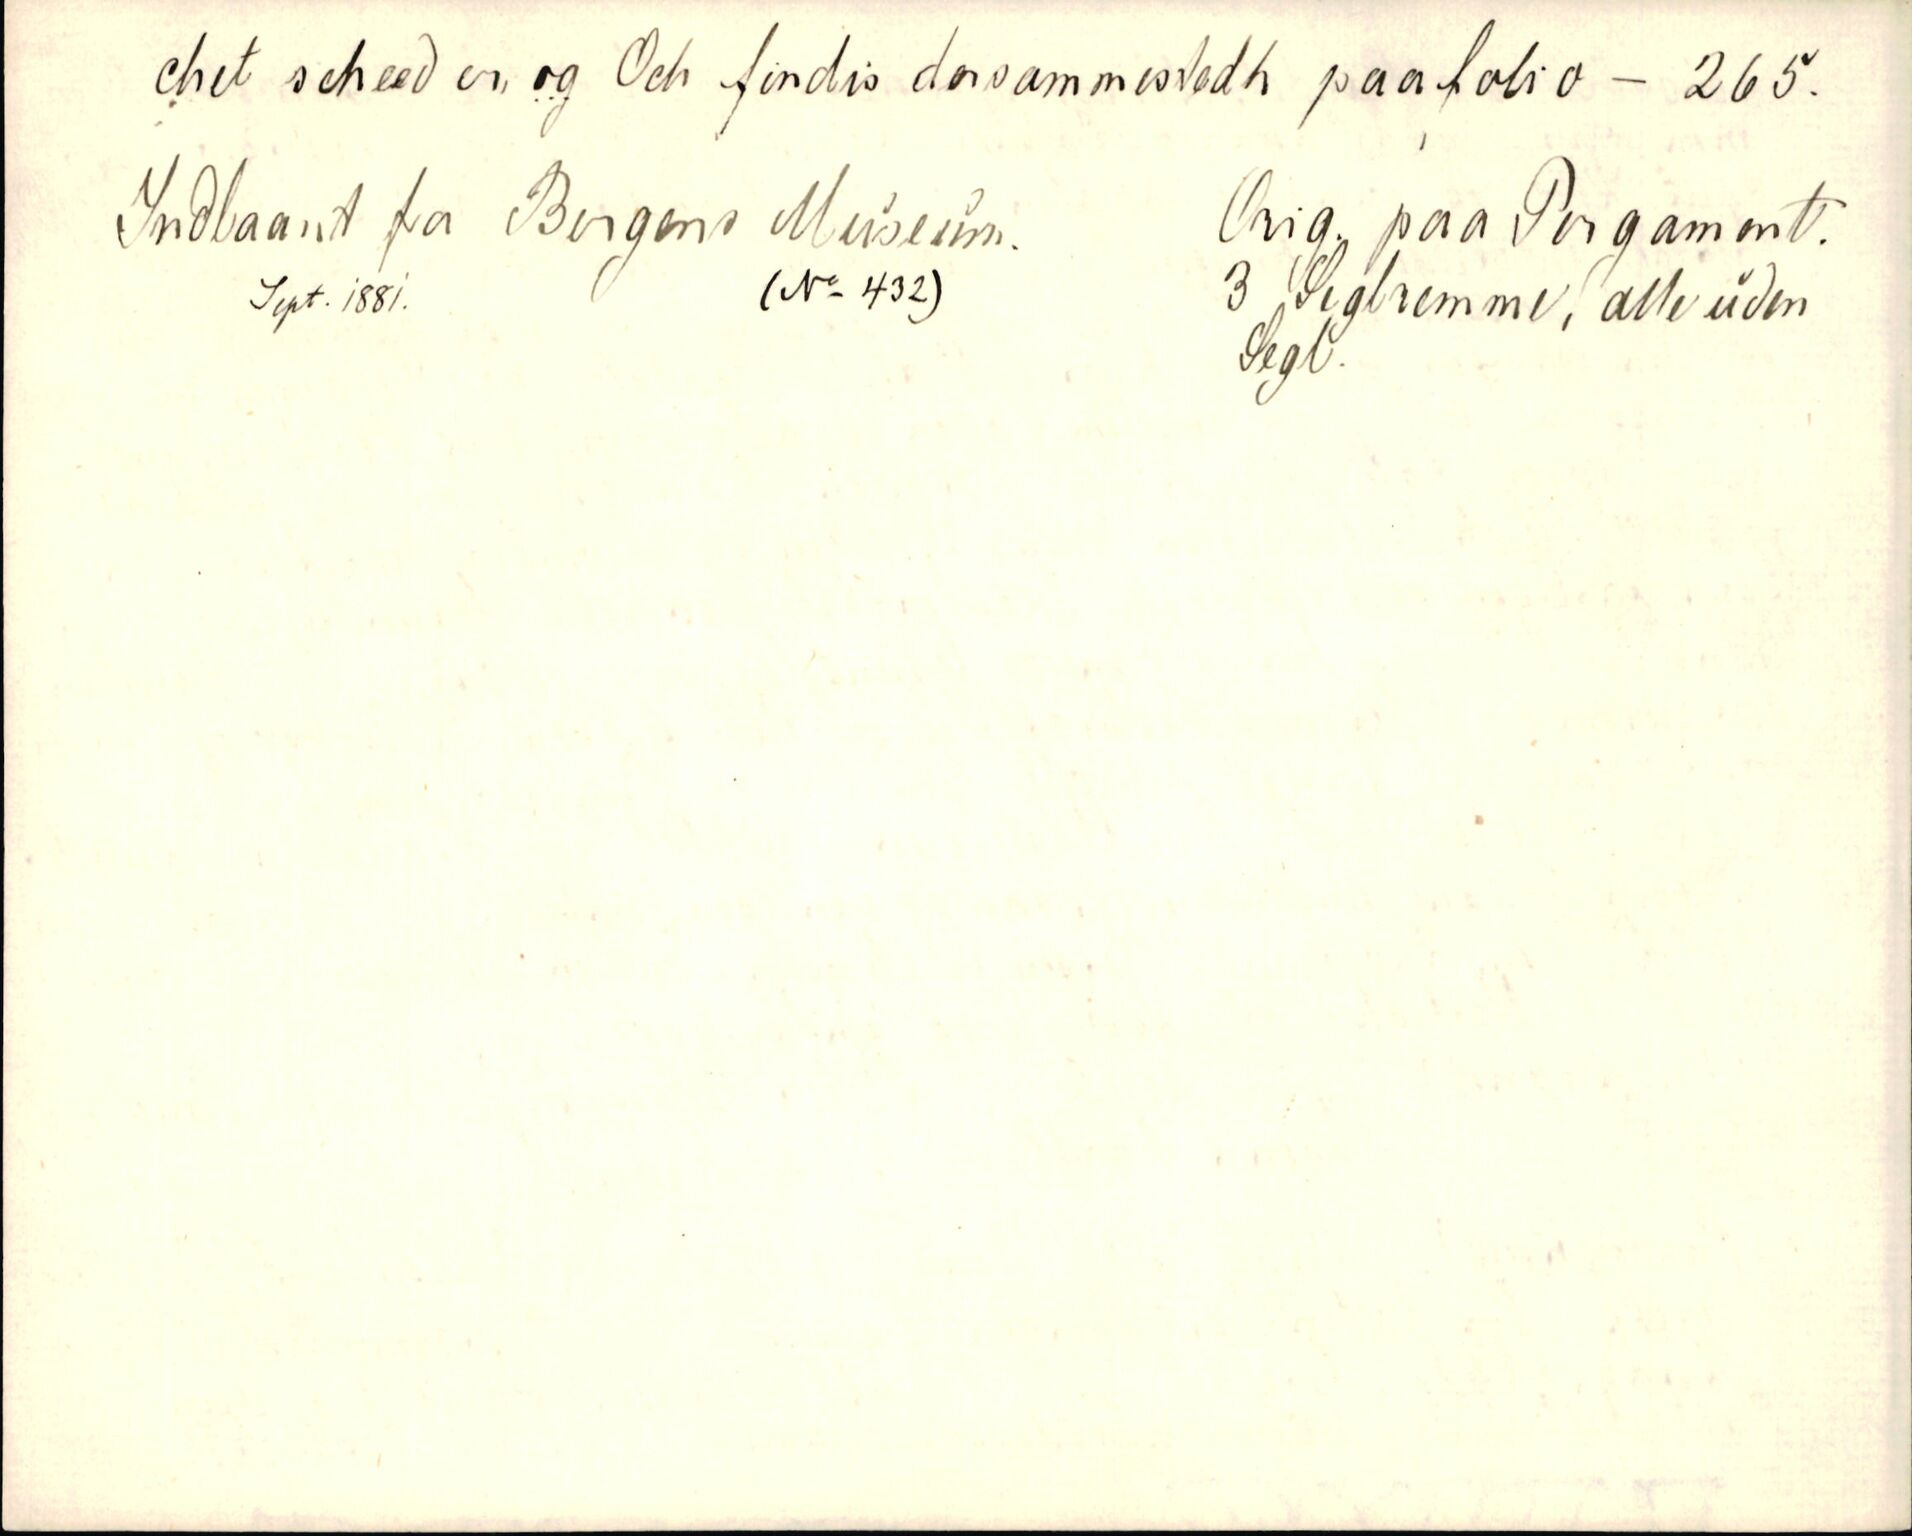 chet scheed er, og Och findis dersammestedh paa folio - 265.
Indlaant fra Bergens Museum.
Sept. 1881.
(No 432)
Orig. paa Pergament.
3 Seglremme, alle uden
Segl.